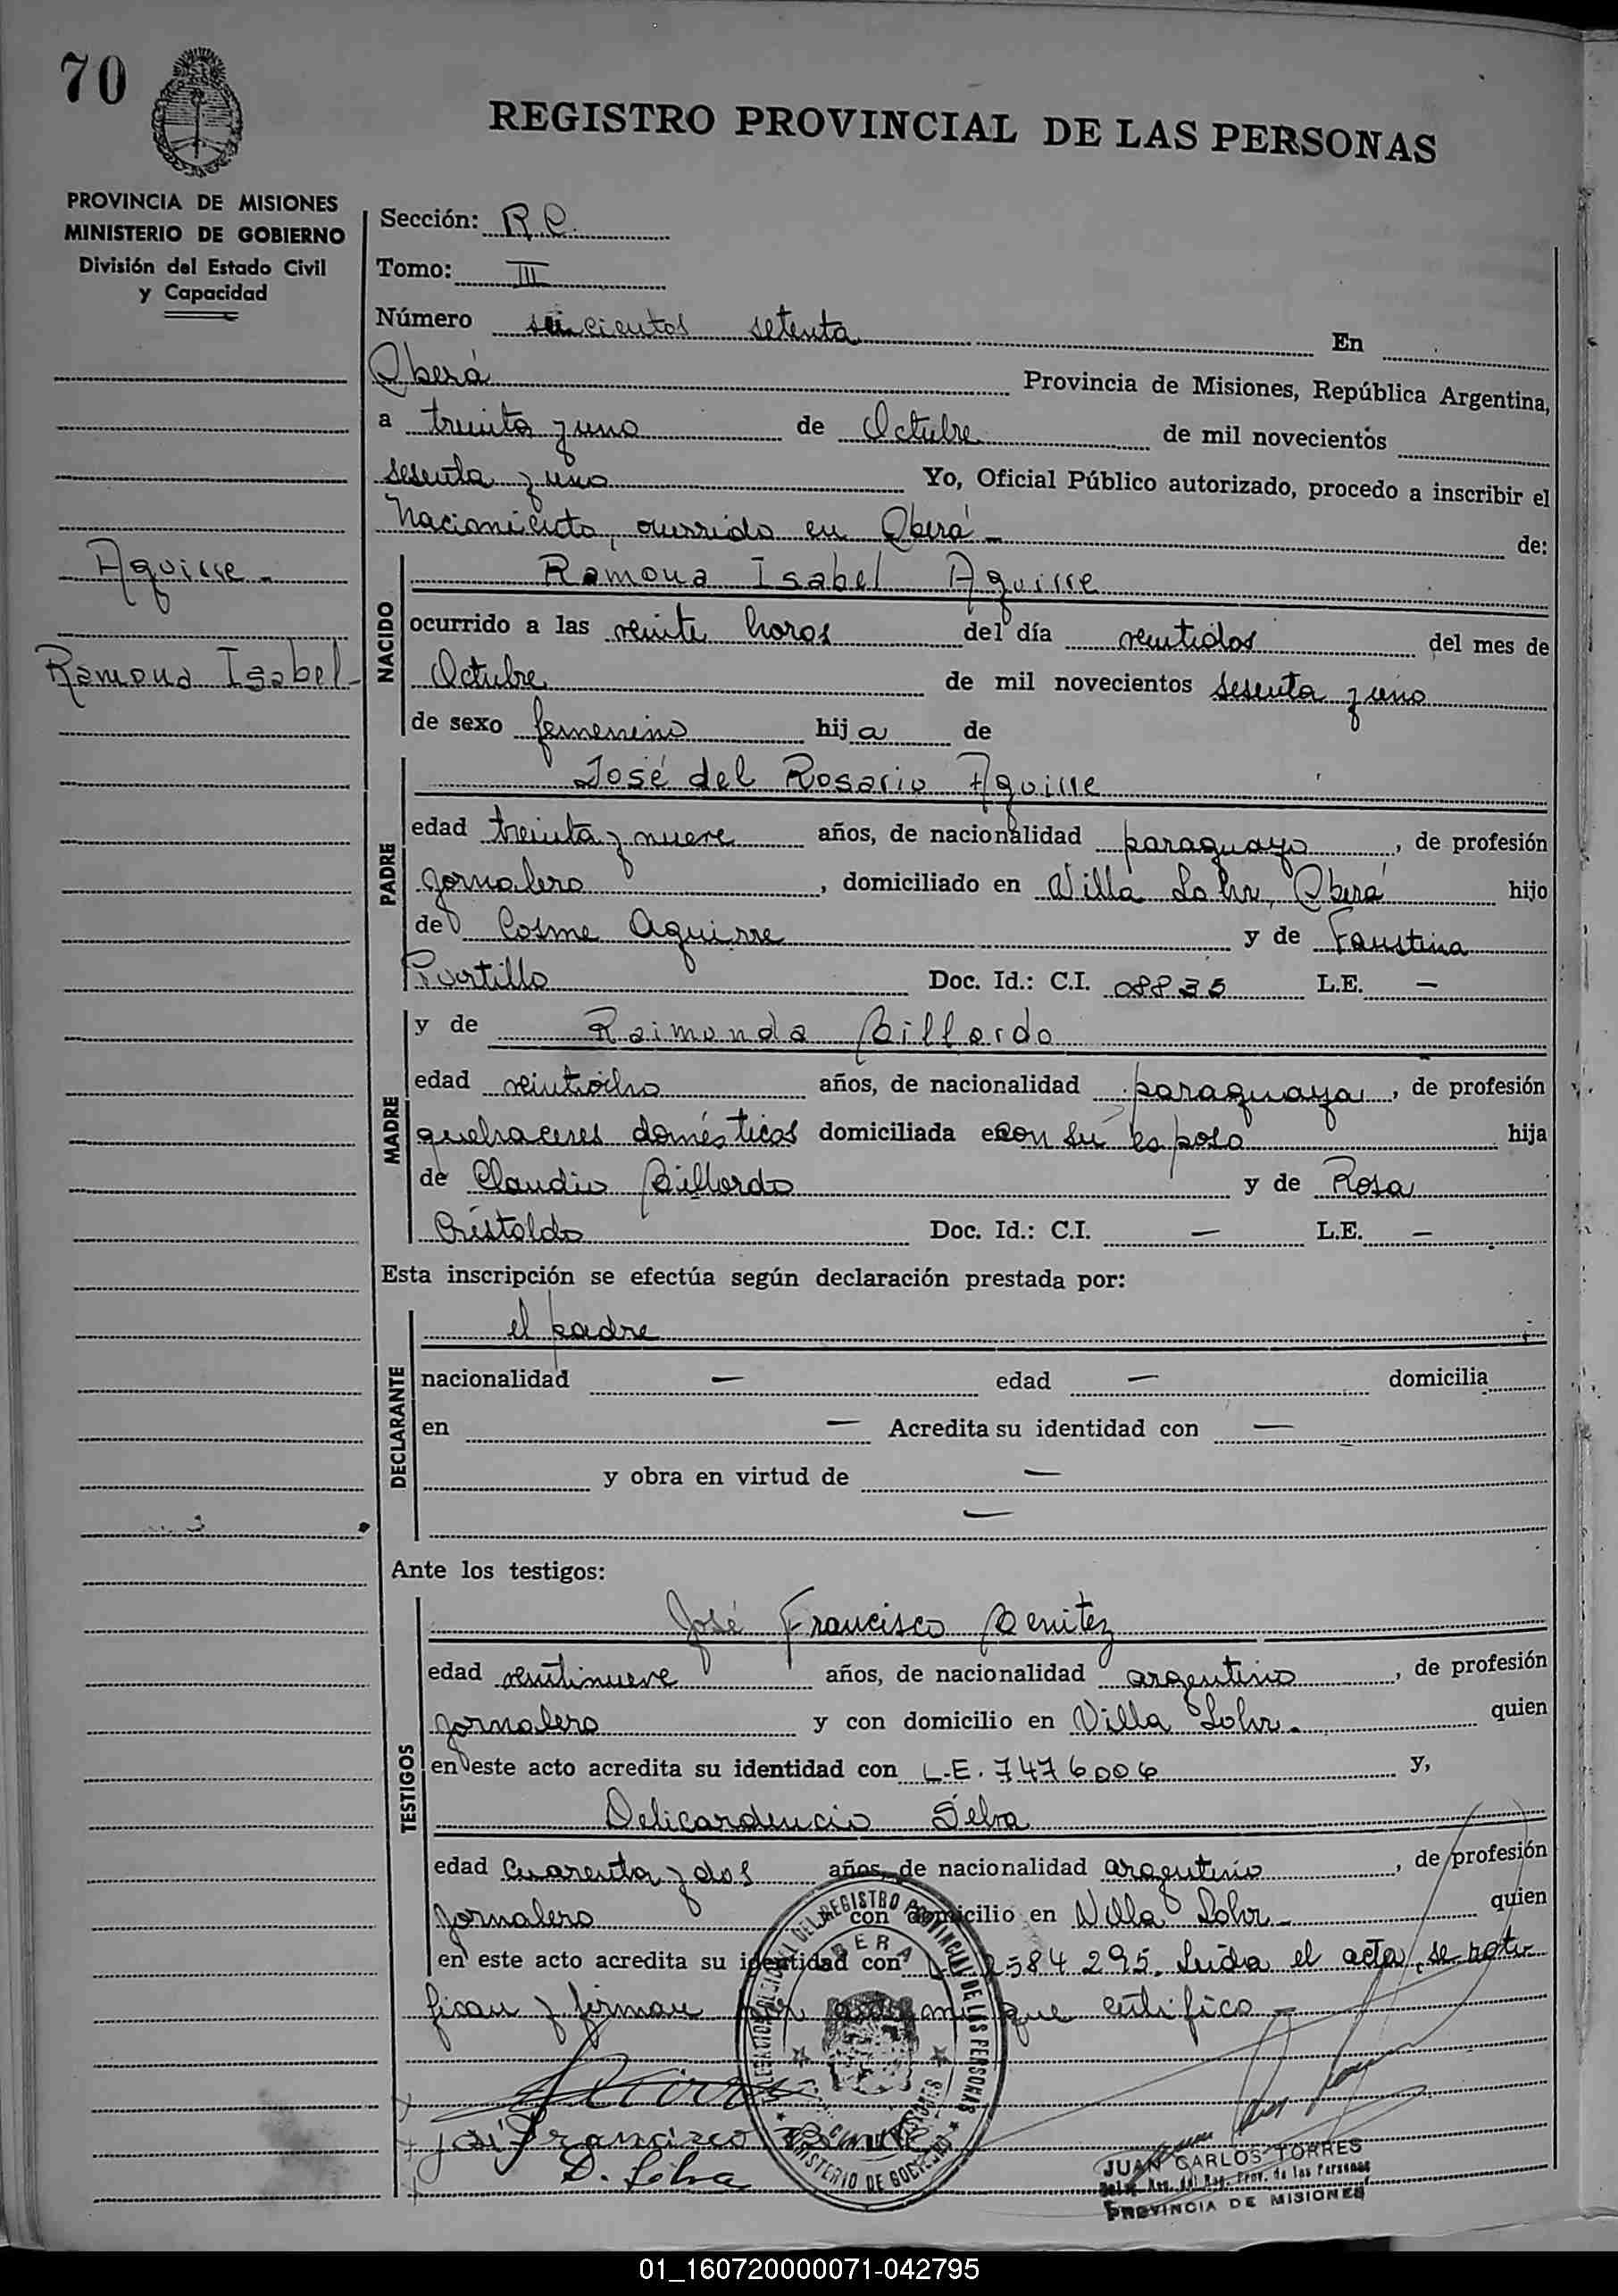 70
REGISTRO PROVINCIAL DE LAS PERSONAS
PROVINCIA DE MISIONES
MINISTERIO DE GOBIERNO
División del Estado Civil
y Capacidad
Sección: R.C.
Tomo: III
Número seiscientos setenta En
Oberá Provincia de Misiones, República Argentina,
a treinta y uno de Octubre de mil novecientos
sesenta y uno Yo, Oficial Público autorizado, procedo a inscribir el
Nacimiento, ocurrido en Oberá - de:
Aguirre -
Ramona Isabel -
NACIDO
Ramona Isabel Aguirre
ocurrido a las veinte horas del día veintidos del mes de
Octubre de mil novecientos sesenta y uno
de sexo femenino hija de
PADRE
José del Rosario Aguirre
edad treinta y nueve años, de nacionalidad paraguayo, de profesión
jornalero, domiciliado en Villa Lohr, Oberá hijo
de Cosme Aguirre y de Faustina
Portillo Doc. Id.: C.I. 08835 L.E. —
MADRE
y de Raimunda Billordo
edad veintiocho años, de nacionalidad paraguaya, de profesión
quehaceres domésticos domiciliada con su esposo hija
de Claudio Billordo y de Rosa
Cristaldo Doc. Id.: C.I. — L.E. —
Esta inscripción se efectúa según declaración prestada por:
DECLARANTE
el padre
nacionalidad — edad — domicilia
en — Acredita su identidad con —
y obra en virtud de —
—
Ante los testigos:
TESTIGOS
José Francisco Benitez
edad veintinueve años, de nacionalidad argentino, de profesión
jornalero y con domicilio en Villa Lohr. quien
en este acto acredita su identidad con L.E. 7476006 y,
Delicardencio Selva
edad cuarenta y dos años, de nacionalidad argentino, de profesión
jornalero y con domicilio en Villa Lohr - quien
en este acto acredita su identidad con 2584295. Leida el acta, se noti-
fican y firman por ante mi que certifico -
José Francisco Benitez
D. Selva
DEL REGISTRO PROVINCIAL DE LAS PERSONAS
OBERA
MISIONES
MINISTERIO DE GOBIERNO
JUAN CARLOS TORRES
del Reg. Prov. de las Personas
PROVINCIA DE MISIONES
01_160720000071-042795